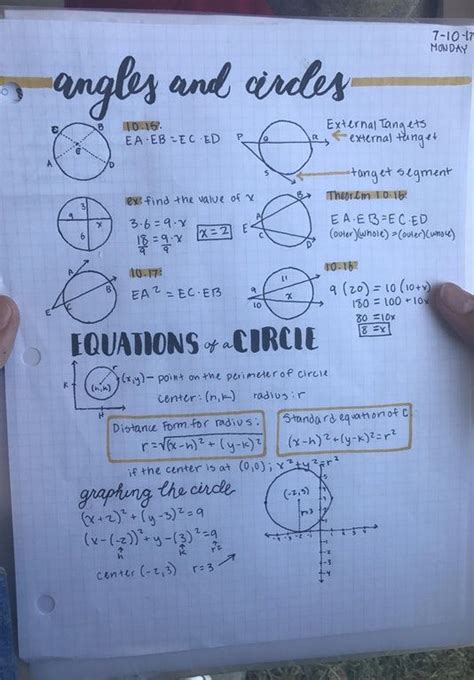 7-10-17
MONDAY
angles and circles
E B
A D
10.15:
EA·EB = EC·ED
P Q R
S
External Tangets
external tanget
tanget segment
3
9 x
6
ex: find the value of x
3·6 = 9·x
18 = 9·x
9 9
x = 2
A B
E C D
Theorem 10.16
EA·EB = EC·ED
(outer)(whole) = (outer)(whole)
A
B
E C
10.17:
EA² = EC·EB
9 11
10 x
10.16
9(20) = 10(10+x)
180 = 100 + 10x
80 = 10x
8 = x
EQUATIONS of a CIRCLE
K
H
(h,k)
r
(x,y) — point on the perimeter of circle
center: (h,k) radius: r
Distance Form for radius:
r = √(x-h)² + (y-k)²
Standard equation of C
(x-h)² + (y-k)² = r²
if the center is at (0,0); x² + y² = r²
graphing the circle
(x+2)² + (y-3)² = 9
(x-(-2))² + y-(3)² = 9
h k r²
center (-2,3) r=3
(-2,3)
r=3